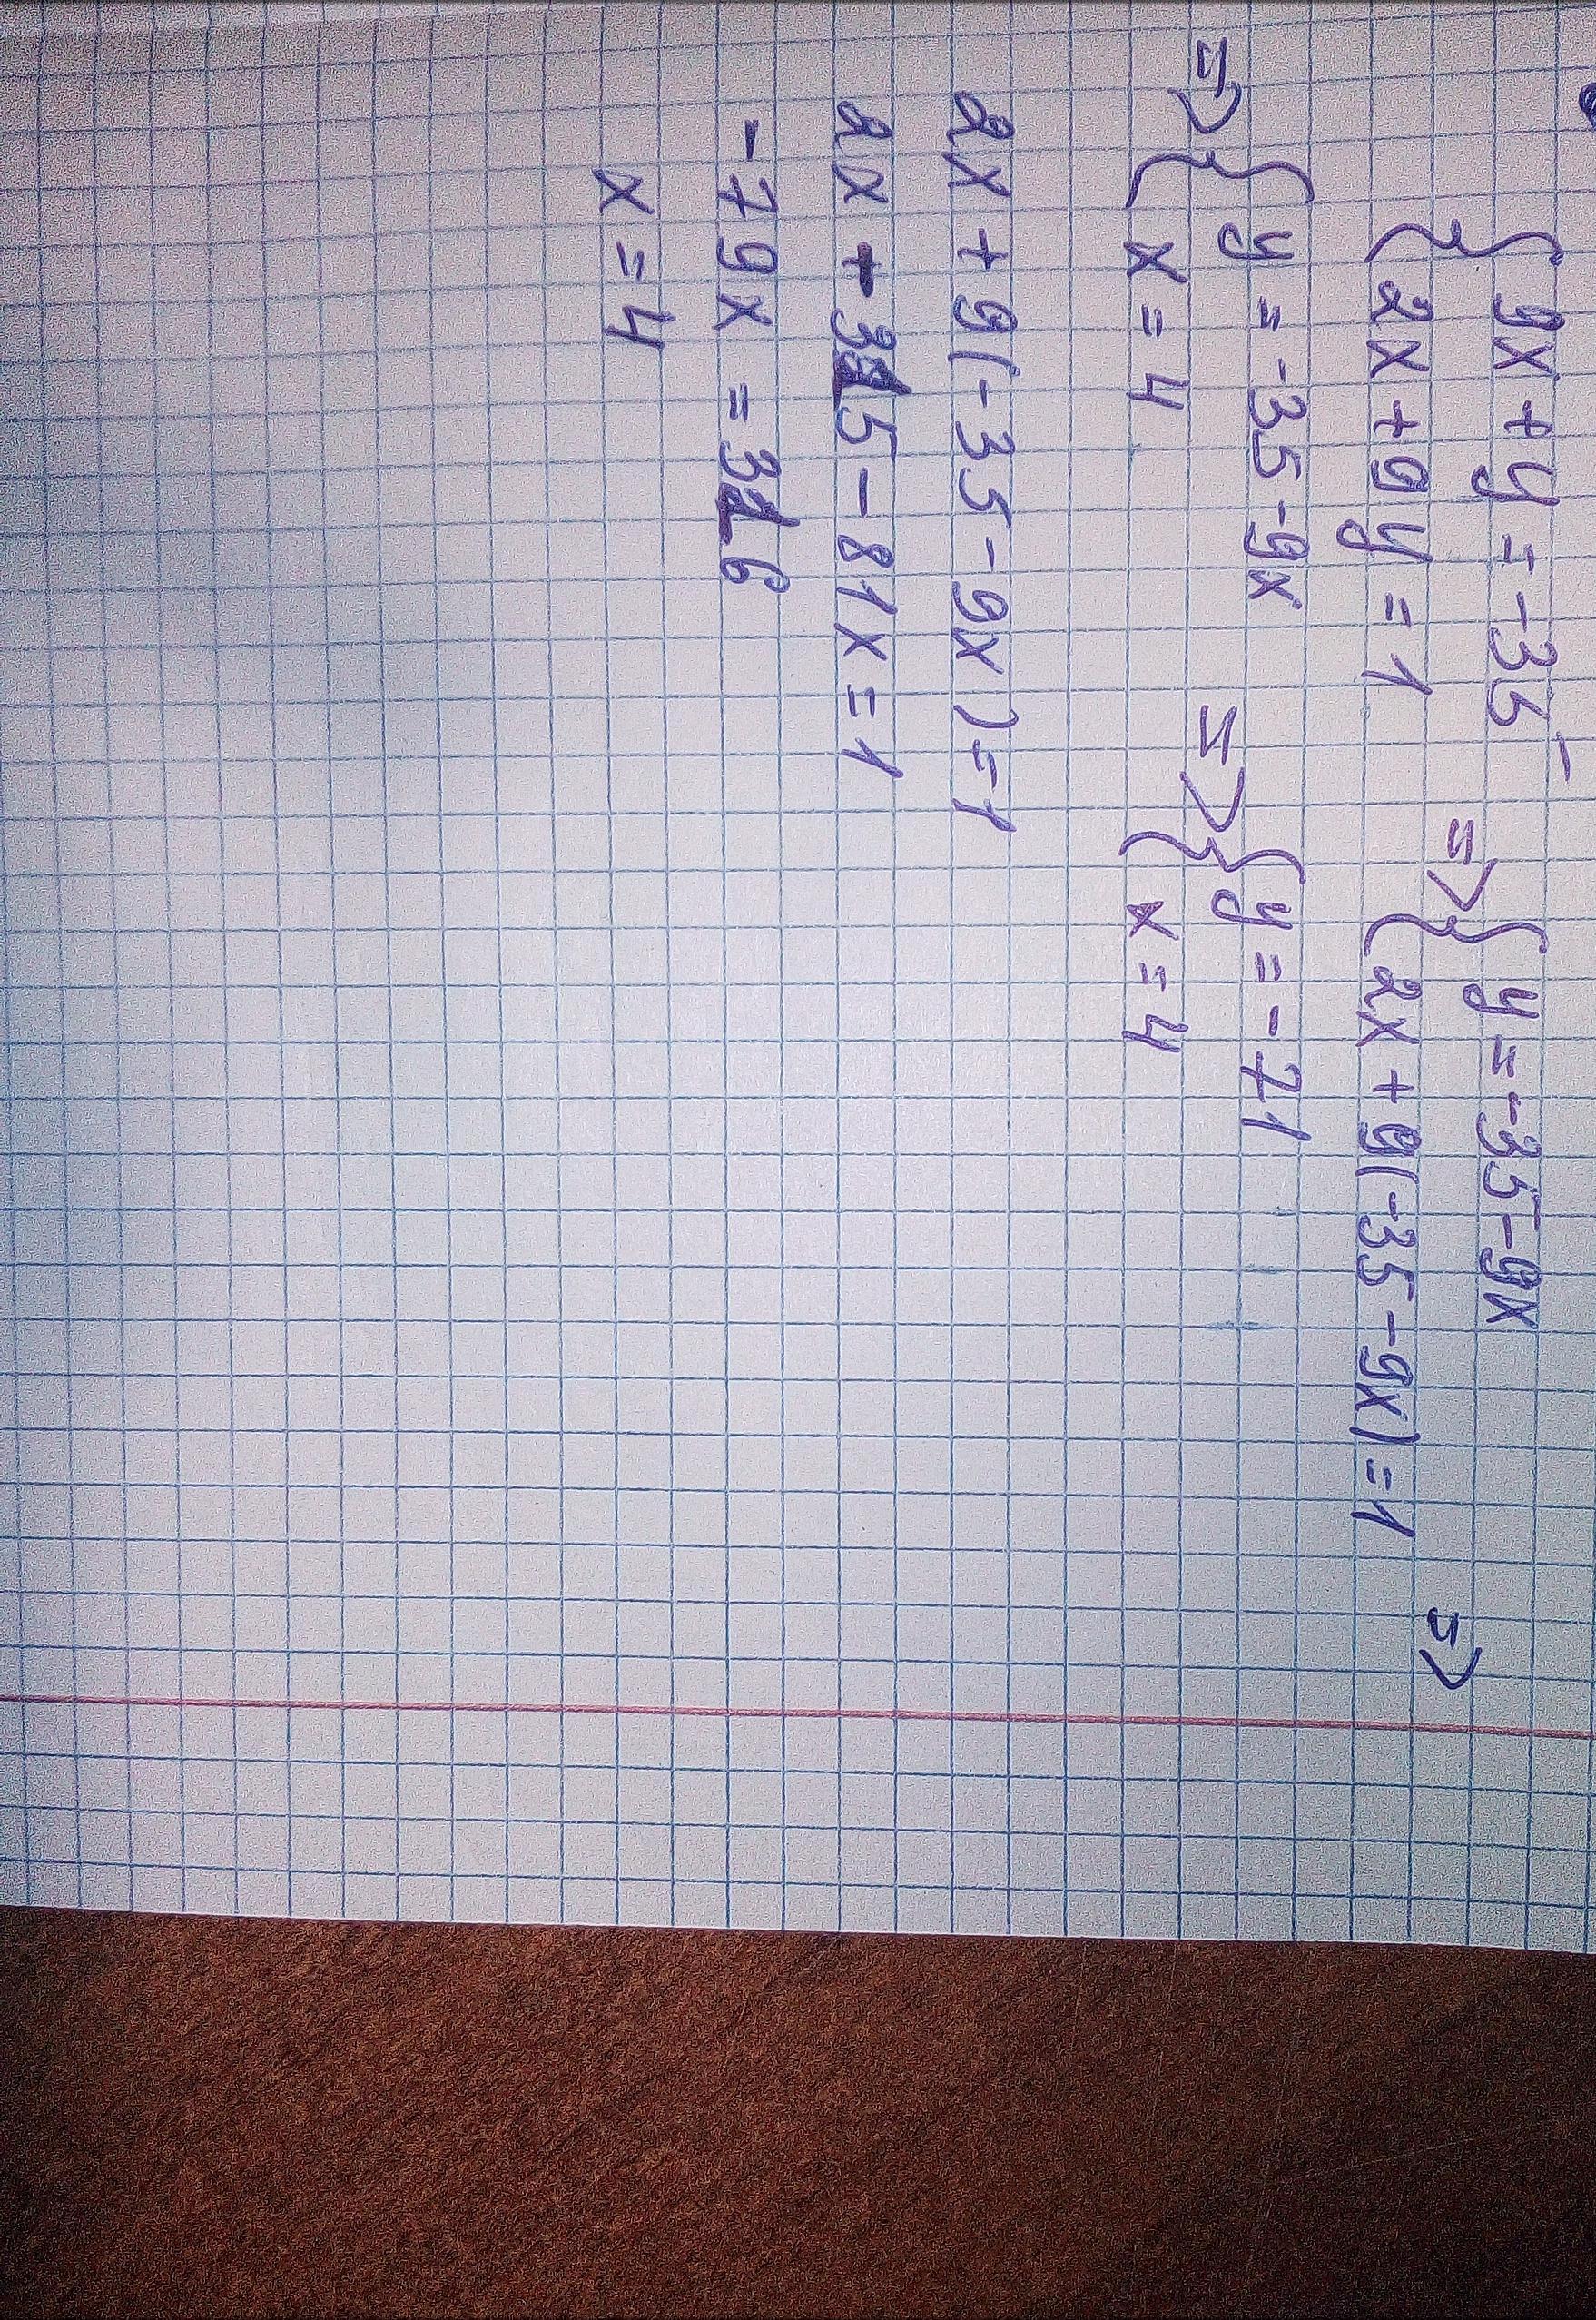 { 9x + y = -35
{ 2x + 9y = 1
=> { y = -35 - 9x
{ 2x + 9(-35 - 9x) = 1 =>
=> { y = -35 - 9x
{ x = 4
=> { y = -71
{ x = 4
2x + 9(-35 - 9x) = 1
2x - 315 - 81x = 1
-79x = 316
x = 4